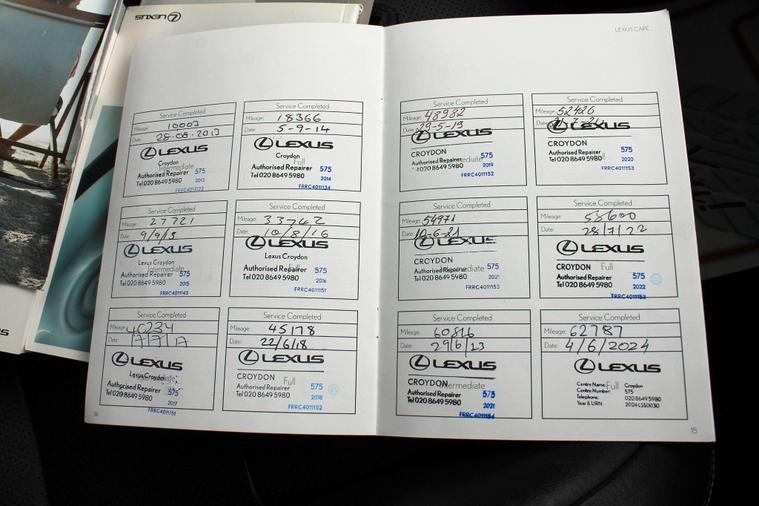 LEXUS
LEXUS CARE
Service Completed
Mileage: 10003
Date: 28-08-2013
LEXUS
Croydon
Intermediate
Authorised Repairer 575
Tel 020 8649 5980 2013
Service Completed
Mileage: 18366
Date: 5-9-14
LEXUS
Croydon
Full
Authorised Repairer 575
Tel 020 8649 5980 2014
FRRC4011134
Service Completed
Mileage: 27721
Date: 9/9/15
LEXUS
Lexus Croydon
Intermediate
Authorised Repairer 575
Tel 020 8649 5980 2015
FRRC4011143
Service Completed
Mileage: 33742
Date: 10/8/16
LEXUS
Lexus Croydon
Full
Authorised Repairer 575
Tel 020 8649 5980 2016
FRRC4011151
Service Completed
Mileage: 40234
Date: 7/7/17
LEXUS
Lexus Croydon
Intermediate
Authorised Repairer 575
Tel 020 8649 5980 2017
Service Completed
Mileage: 45178
Date: 22/6/18
LEXUS
CROYDON Full
Authorised Repairer 575
Tel 020 8649 5980 2018
FRRC4011152
14
Service Completed
Mileage: 48982
Date: 29-5-19
LEXUS
CROYDON
Intermediate
Authorised Repairer 575
Tel 020 8649 5980 2019
FRRC4011152
Service Completed
Mileage: 52426
Date:
LEXUS
CROYDON
Full
Authorised Repairer 575
Tel 020 8649 5980 2020
FRRC4011153
Service Completed
Mileage: 54971
Date: 10-6-21
LEXUS
CROYDON
Intermediate
Authorised Repairer 575
Tel 020 8649 5980 2021
FRRC4011153
Service Completed
Mileage: 58600
Date: 28/7/22
LEXUS
CROYDON Full
Authorised Repairer 575
Tel 020 8649 5980 2022
FRRC4011153
Service Completed
Mileage: 60816
Date: 29/6/23
LEXUS
CROYDON Intermediate
Authorised Repairer 575
Tel 020 8649 5980 2021
FRRC4011154
Service Completed
Mileage: 62787
Date: 4/6/2024
LEXUS
Full
Centre Name: Croydon
Centre Number: 575
Telephone: 020 8649 5980
Year & URN: 2024 LSS0030
15